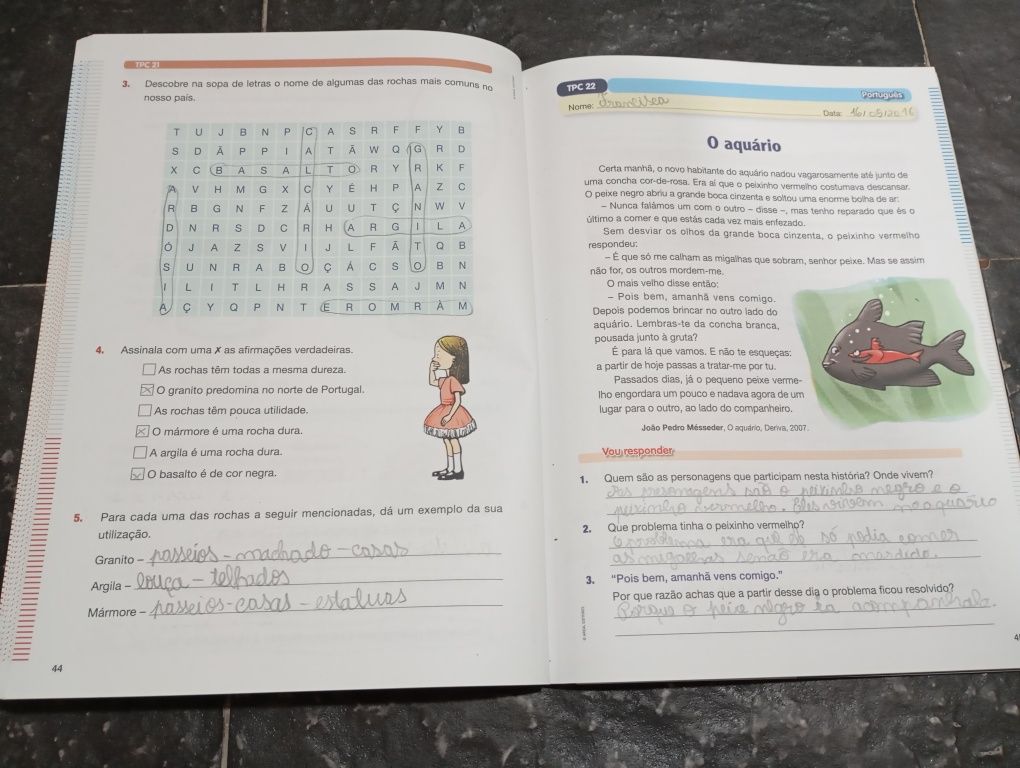 TPC 21
3. Descobre na sopa de letras o nome de algumas das rochas mais comuns no
nosso país.
T U J B N P C A S R F F Y B
S D Ã P P I A T Ã W Q G R D
X C B A S A L T O R Y R K F
A V H M G X C Y É H P A Z C
R B G N F Z Á U U T Ç N W V
D N R S D C R H A R G I L A
Ó J A Z S V I J L F Ã T Q B
S U N R A B O Ç Á C S O B N
I L I T L H R A S S A J M N
A Ç Y Q P N T E R O M R Á M
4. Assinala com uma ✗ as afirmações verdadeiras.
As rochas têm todas a mesma dureza.
O granito predomina no norte de Portugal.
As rochas têm pouca utilidade.
O mármore é uma rocha dura.
A argila é uma rocha dura.
O basalto é de cor negra.
5. Para cada uma das rochas a seguir mencionadas, dá um exemplo da sua
utilização.
Granito – passeios - machado - casas
Argila – louça - telhados
Mármore – passeios - casas - estatuas
44
TPC 22
Português
Nome: Francisca
Data: 16/05/2016
O aquário
Certa manhã, o novo habitante do aquário nadou vagarosamente até junto de
uma concha cor-de-rosa. Era aí que o peixinho vermelho costumava descansar.
O peixe negro abriu a grande boca cinzenta e soltou uma enorme bolha de ar:
– Nunca falámos um com o outro – disse –, mas tenho reparado que és o
último a comer e que estás cada vez mais enfezado.
Sem desviar os olhos da grande boca cinzenta, o peixinho vermelho
respondeu:
– É que só me calham as migalhas que sobram, senhor peixe. Mas se assim
não for, os outros mordem-me.
O mais velho disse então:
– Pois bem, amanhã vens comigo.
Depois podemos brincar no outro lado do
aquário. Lembras-te da concha branca,
pousada junto à gruta?
É para lá que vamos. E não te esqueças:
a partir de hoje passas a tratar-me por tu.
Passados dias, já o pequeno peixe verme-
lho engordara um pouco e nadava agora de um
lugar para o outro, ao lado do companheiro.
João Pedro Mésseder, O aquário, Deriva, 2007.
Vou responder
1. Quem são as personagens que participam nesta história? Onde vivem?
As personagens são o peixinho negro e o
peixinho vermelho. Eles vivem no aquário
2. Que problema tinha o peixinho vermelho?
O problema era que ele só podia comer
as migalhas senão era mordido.
3. "Pois bem, amanhã vens comigo."
Por que razão achas que a partir desse dia o problema ficou resolvido?
Porque o peixe negro ia acompanhalo.